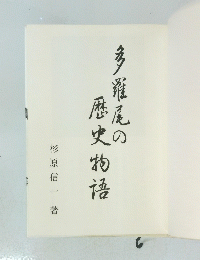 多羅尾の
歴史物語
杉原信一著